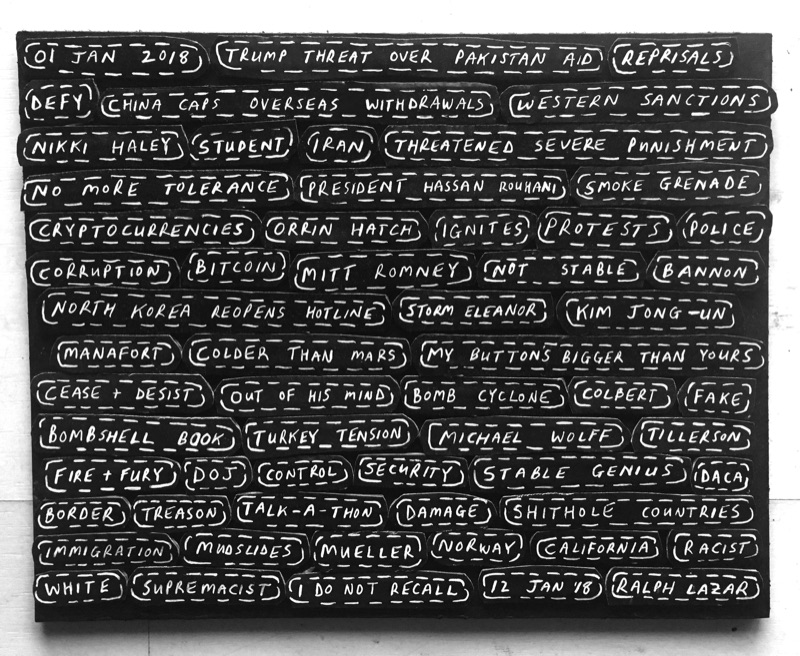 01 JAN 2018 TRUMP THREAT OVER PAKISTAN AID REPRISALS
DEFY CHINA CAPS OVERSEAS WITHDRAWALS WESTERN SANCTIONS
NIKKI HALEY STUDENT IRAN THREATENED SEVERE PUNISHMENT
NO MORE TOLERANCE PRESIDENT HASSAN ROUHANI SMOKE GRENADE
CRYPTOCURRENCIES ORRIN HATCH IGNITES PROTESTS POLICE
CORRUPTION BITCOIN MITT ROMNEY NOT STABLE BANNON
NORTH KOREA REOPENS HOTLINE STORM ELEANOR KIM JONG-UN
MANAFORT COLDER THAN MARS MY BUTTON'S BIGGER THAN YOURS
CEASE + DESIST OUT OF HIS MIND BOMB CYCLONE COLBERT FAKE
BOMBSHELL BOOK TURKEY TENSION MICHAEL WOLFF TILLERSON
FIRE + FURY DOJ CONTROL SECURITY STABLE GENIUS DACA
BORDER TREASON TALK-A-THON DAMAGE SHITHOLE COUNTRIES
IMMIGRATION MUDSLIDES MUELLER NORWAY CALIFORNIA RACIST
WHITE SUPREMACIST I DO NOT RECALL 12 JAN '18 RALPH LAZAR